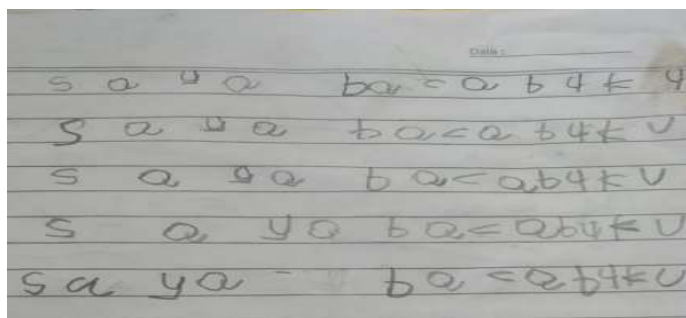 Date:
saya baca buku
saya baca buku
saya baca buku
saya baca buku
saya - baca buku